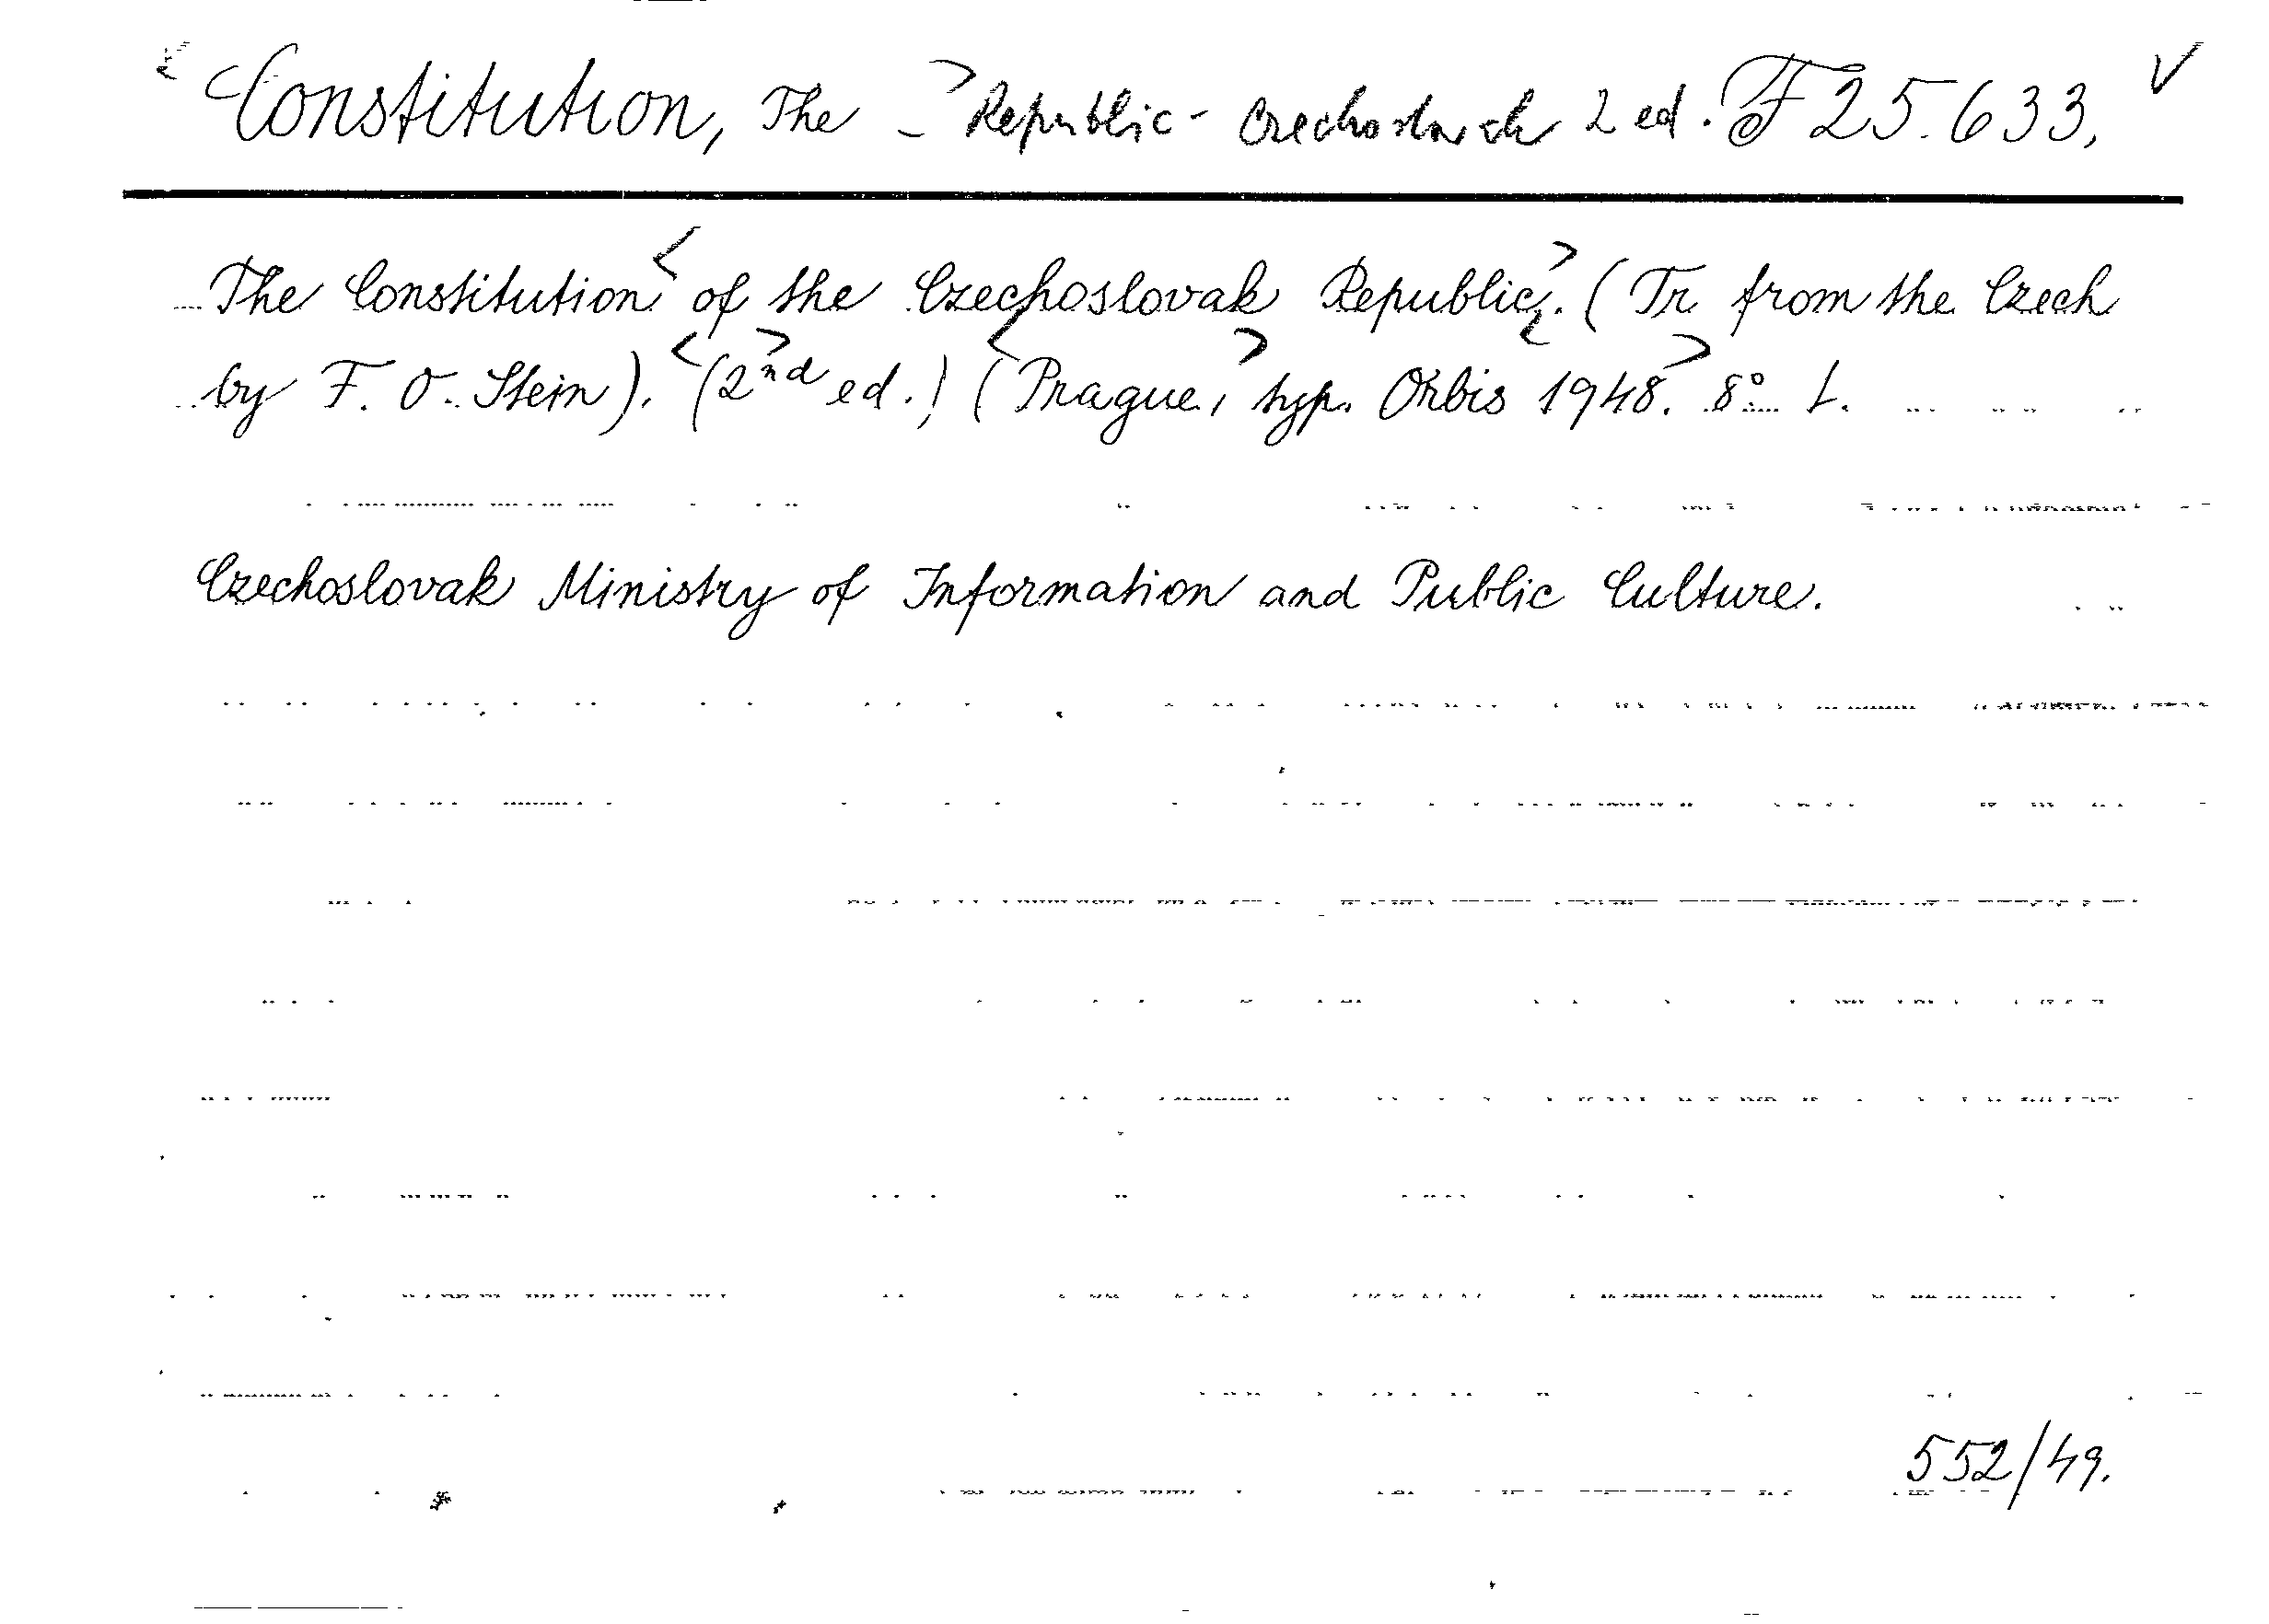 < Constitution, The – > Republic - Czechoslovak 2 ed. F 25.633. ✓
The Constitution < of the Czechoslovak Republic >. (Tr from the Czech
by F. O. Stein). < (2nd > ed.) < (Prague, > typ. < Orbis 1948. > 8° L.
Czechoslovak Ministry of Information and Public Culture.
552/49.